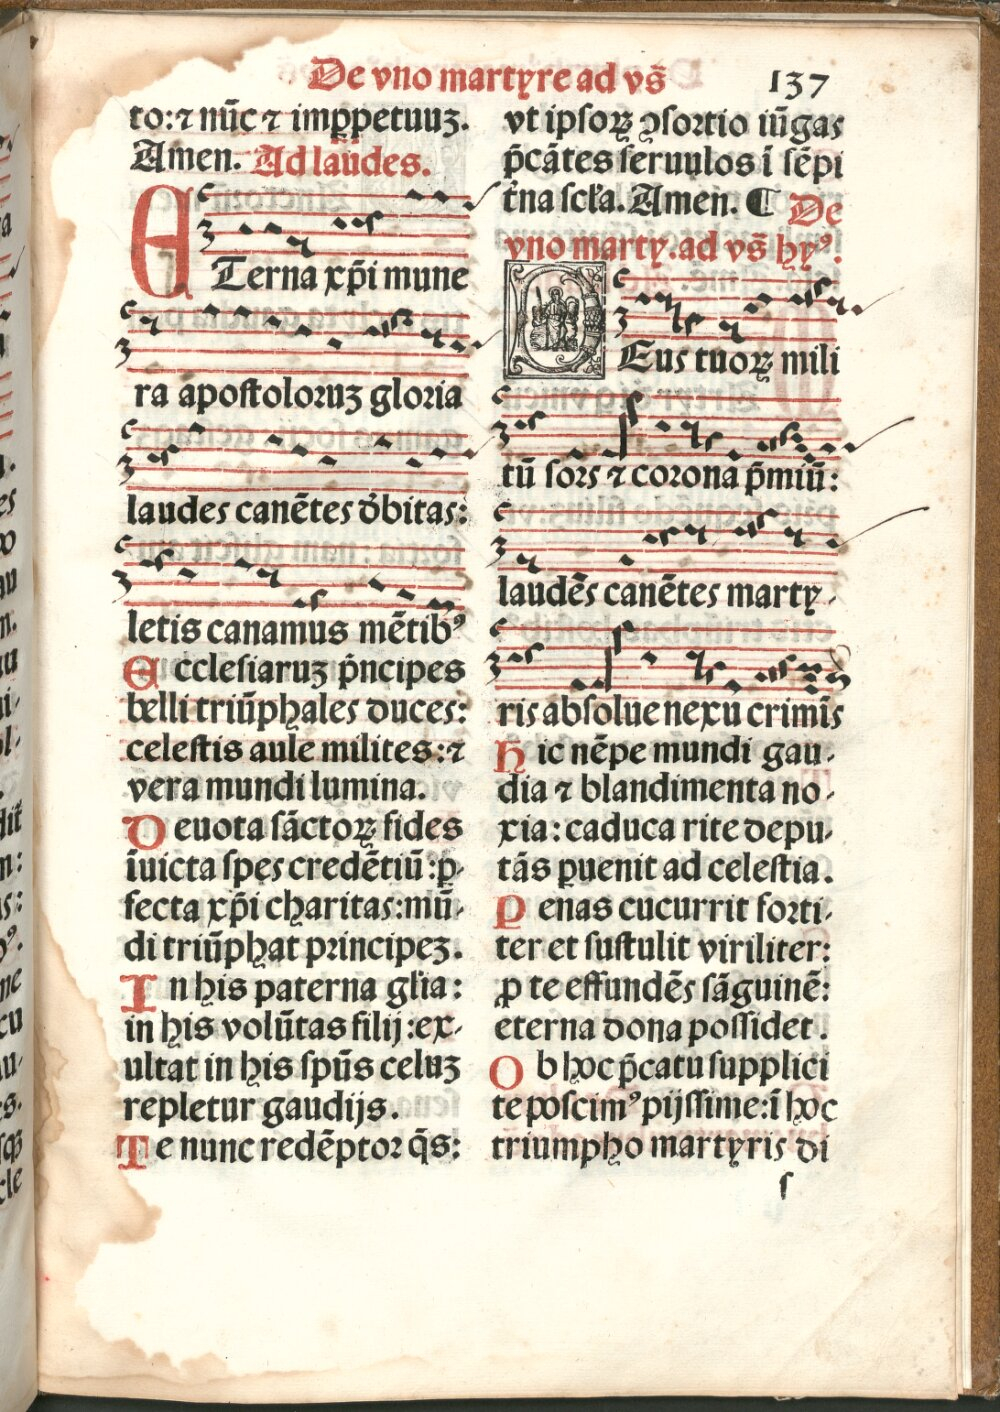 De vno martyre ad vs̄ 137
to: ⁊ nūc ⁊ imꝑpetuuꝫ.
Amen. Ad laudes.
ETerna xp̄i mune
ra apostoloruꝫ gloria
laudes canētes d̄bitas:
letis canamus mētibꝰ
Ecclesiaruꝫ p̄ncipes
belli triūphales duces:
celestis aule milites: ⁊
vera mundi lumina.
Deuota sāctoꝝ fides
īuicta spes credētiū: ꝑ-
fecta xp̄i charitas: mū-
di triūphat principeꝫ.
In his paterna gl̄ia:
in his volūtas filij: ex-
ultat in his sp̄us celuꝫ
repletur gaudijs.
Te nunc redēptor q̄s:
vt ipsoꝝ ꝯsortio iūgas
p̄cātes seruulos ī sēpi
t̄na scl̄a. Amen. ¶ De
vno marty. ad vs̄ hyꝰ.
DEus tuoꝝ mili
tū sors ⁊ corona p̄miū:
laudēs canētes marty-
ris absolue nexu crimīs
Hic nēpe mundi gau-
dia ⁊ blandimenta no-
xia: caduca rite depu-
tās ꝑuenit ad celestia.
Penas cucurrit forti-
ter et sustulit viriliter:
ꝓ te effundēs sāguinē:
eterna dona possidet.
Ob hoc p̄catu supplici
te poscimꝰ pijssime: ī hoc
triumpho martyris di
s